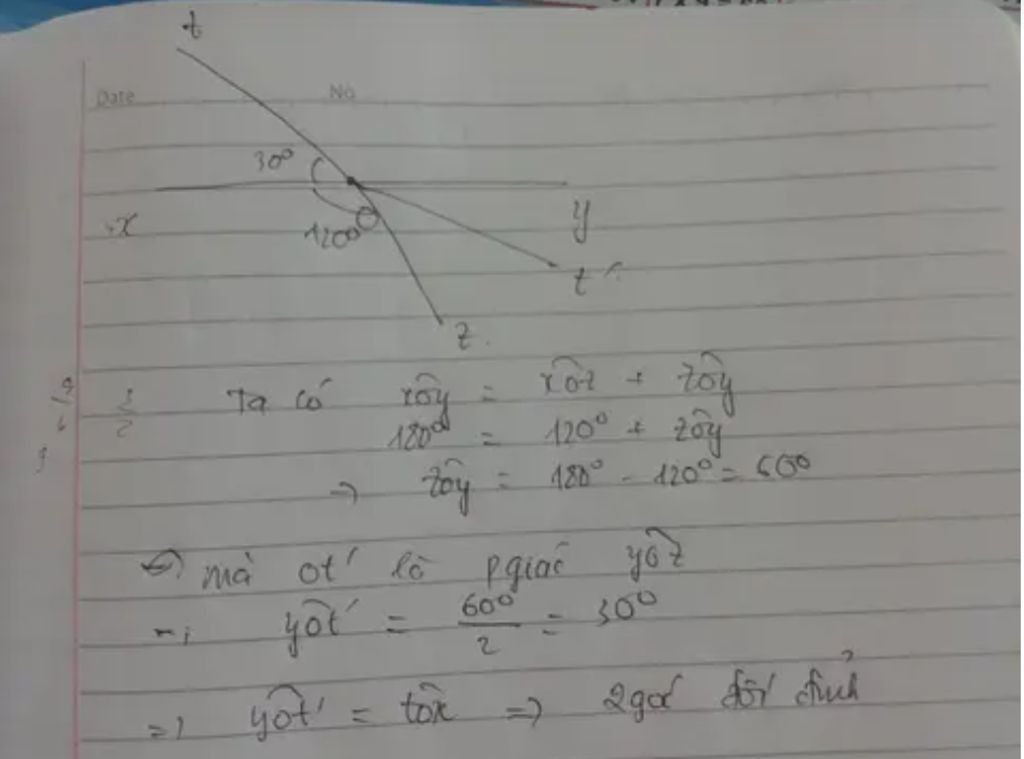 t
Date No
30°
x
120°
y
t'
z.
Ta có xôy = xôz + zôy
180° = 120° + zôy
=> zôy = 180° - 120° = 60°
mà ot' là pgiác yôz
yôt' = 60°/2 = 30°
=> yôt' = tôx => 2góc đối đỉnh